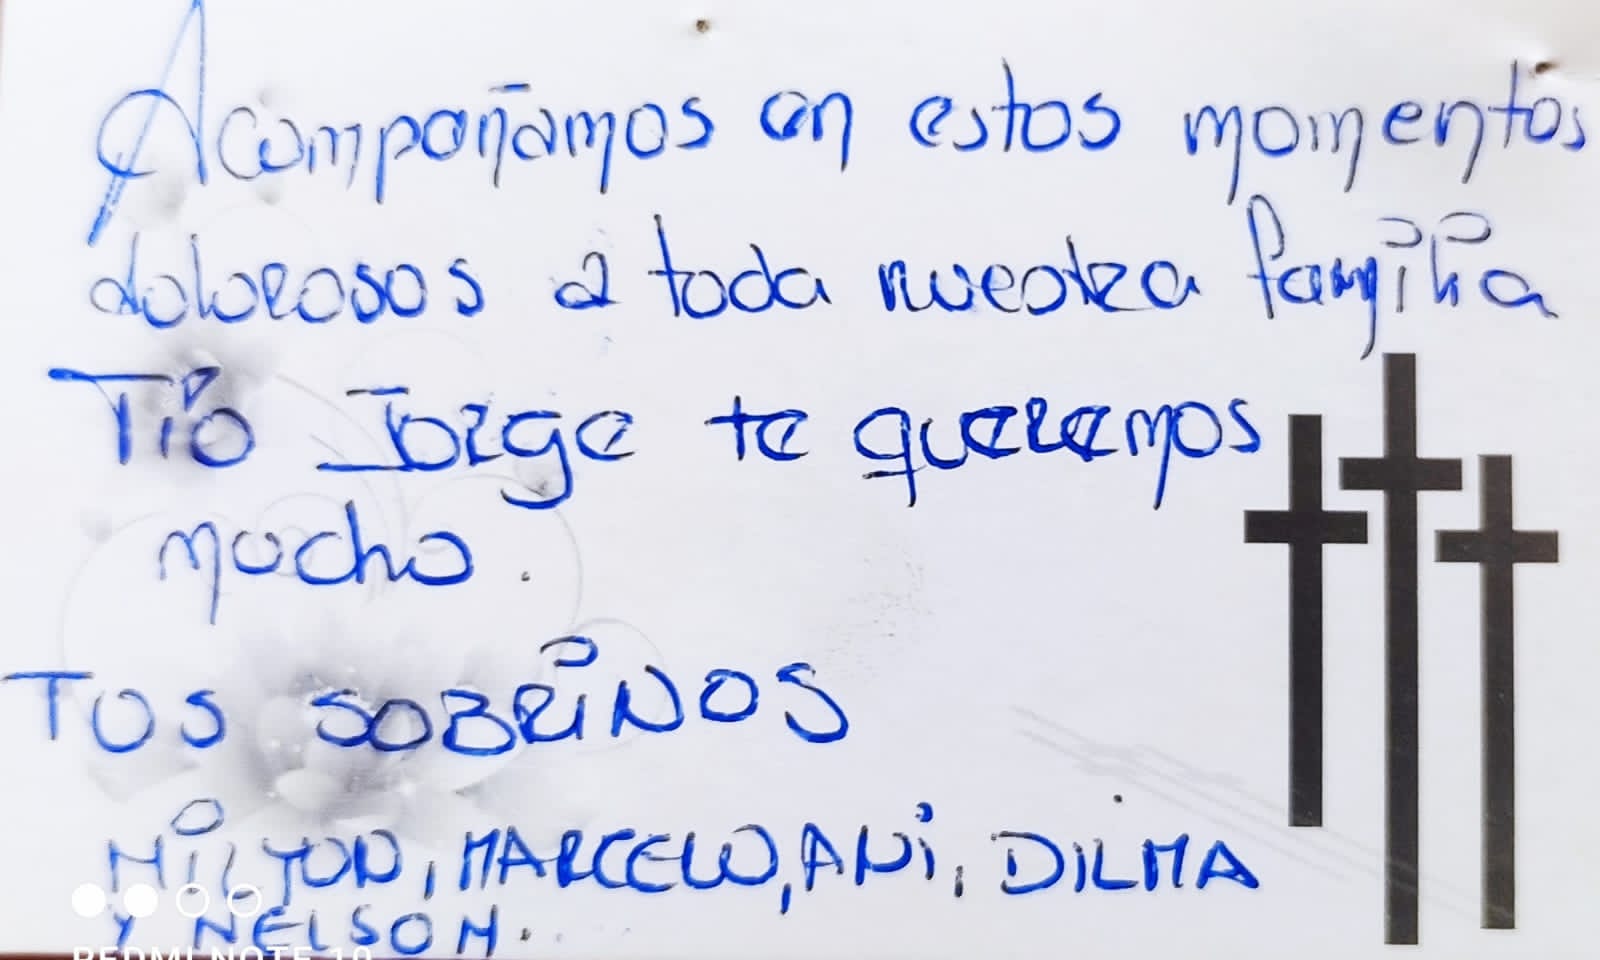 Acompañamos en estos momentos
dolorosos a toda nuestra familia
Tío Jorge te queremos
mucho.
TUS SOBRINOS
MILTON, MARCELO, ANI, DILMA
Y NELSON.
REDMI NOTE 10